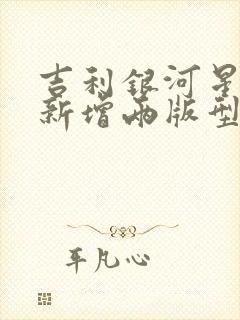 吉利银河星
新增两版型
平凡心